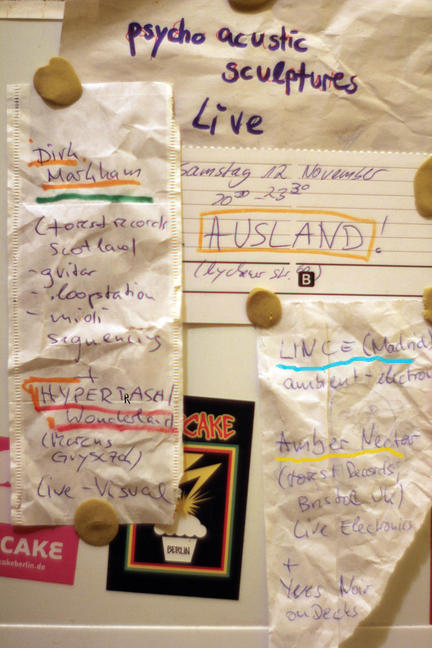 psycho acustic
sculptures
Live
Samstag 12 November
20 30 - 23 30
AUSLAND!
(Lychener Str. 60)
B
Dirk
Markham
(forest records
Scotland
- guitar
- loopstation
- midi
sequencing
+
HYPERTRASH/
Wonderland
(Marcus
Live-Visual
LINCE (Madrid)
ambient-electro
Amber Nectar
(forest Records,
Bristol UK)
Live Electronics
+
Yeres Noir
on Decks
CAKE
BERLIN
CAKE
cakeberlin.de